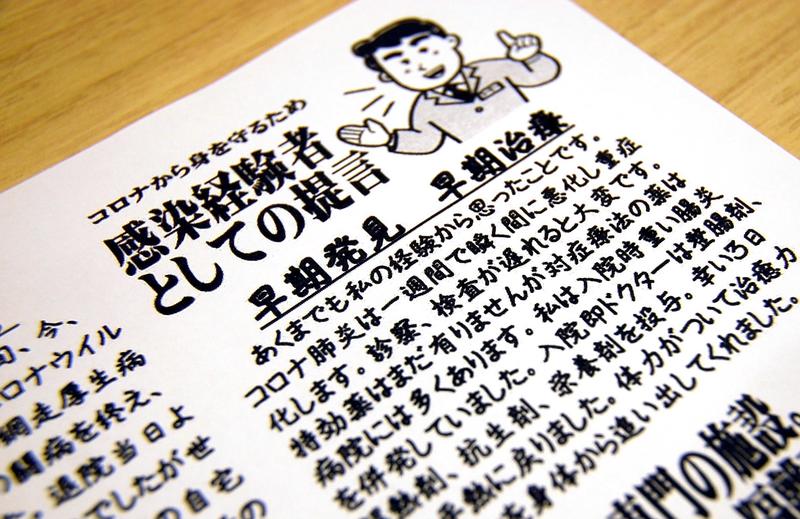 コロナから身を守るため
感染経験者
としての提言
早期発見　早期治療
あくまでも私の経験から思ったことです。
コロナ肺炎は一週間で瞬く間に悪化し重症
化します。診察、検査が遅れると大変です。
特効薬はまだ有りませんが対症療法の薬は
病院には多くあります。私は入院時重い腸炎
を併発していました。入院即ドクターは整腸剤、
熱剤、抗生剤、栄養剤を投与。幸い3日
平熱に戻りました。体力がついて治癒力
身体から追い出してくれました。
専門の施設。
今、
コロナウイル
網走厚生病
闘病を終え、
退院当日よ
でしたがせ
の自宅
の